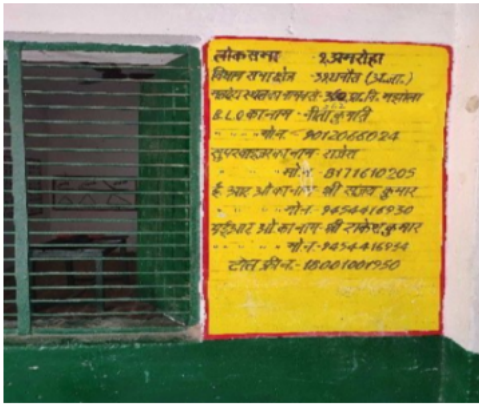 लोकसभा 9 अमरोहा
विधान सभा क्षेत्र (अ.जा.)
मतदेय स्थल का नाम व सं- प्रा. वि.
B.L.O का नाम - नीतू कुमारी
" " " मो.न. - 9012066024
सुपरवाइजर का नाम- राजेश
" " मो.न.- 8171610205
ई आर ओ का नाम श्री संजय कुमार
" " " मो.न.- 9454416930
ए ई आर ओ का नाम- श्री राकेश कुमार
" " " मो.न.-9454416954
टोल फ्री न.- 18001001950